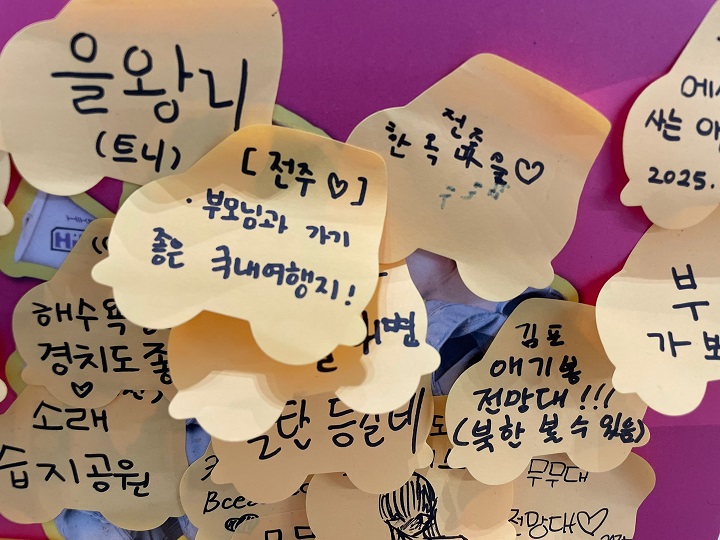 을왕리
(트니)
[전주♡]
· 부모님과 가기
좋은 국내여행지!
전주
한옥마을♡
에서
사는
2025.
부
가보
해수욕
경치도 좋
♡
소래
습지공원
김포
애기봉
전망대!!!
(북한 볼 수 있음)
탄 등실네
무무대
전망대♡